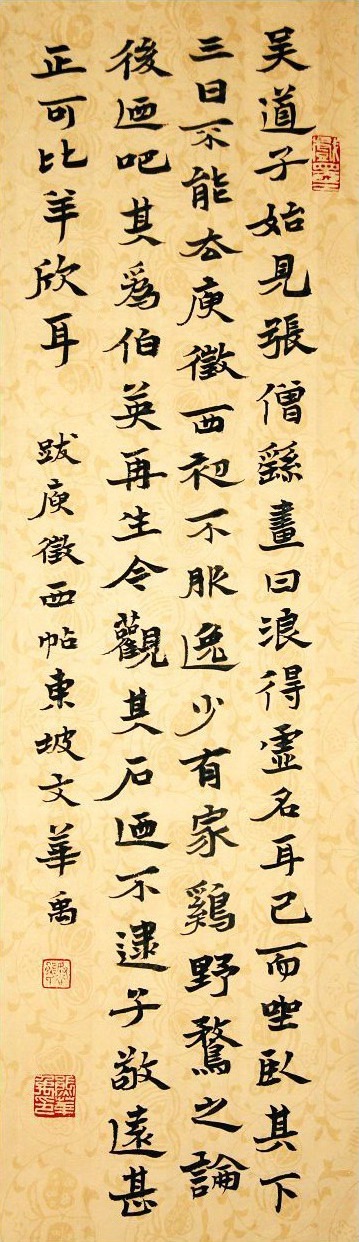 吴道子始見張僧繇畫曰浪得虛名耳已而坐臥其下
三日不能去庾徵西初不服逸少有家鷄野鶩之論
後迺吧其爲伯英再生今觀其石迺不逮子敬遠甚
正可比羊欣耳
跋庾徵西帖東坡文華禹